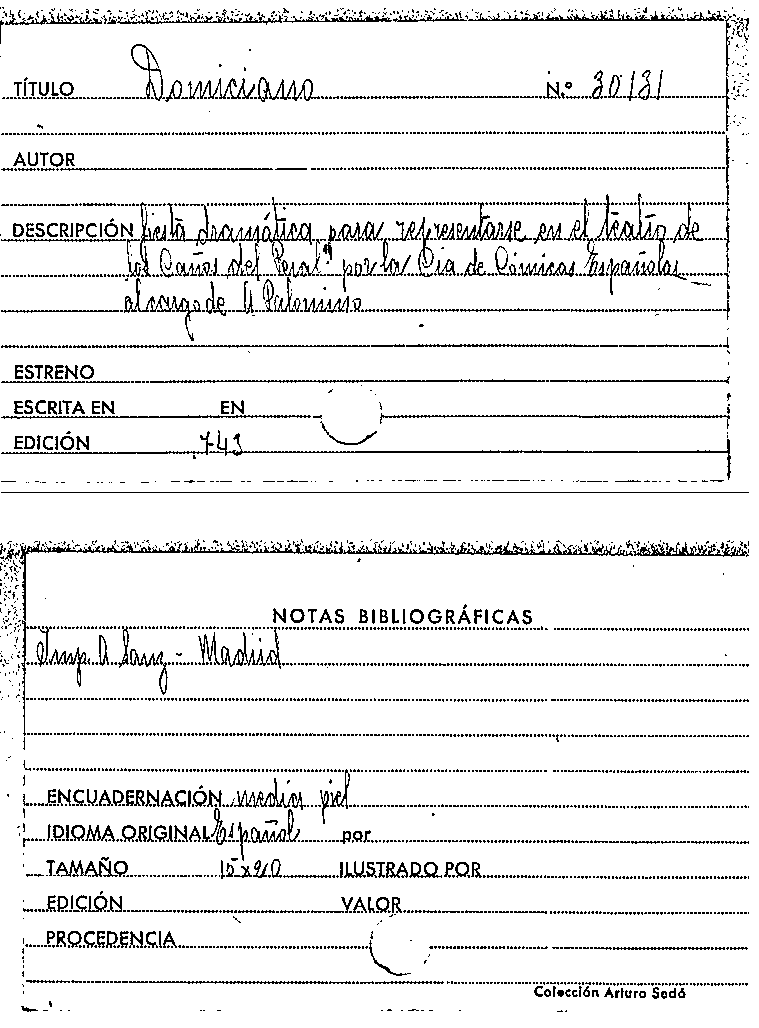 TÍTULO Domiciano N.º 30131
AUTOR
DESCRIPCIÓN fiesta dramática para representarse en el teatro de
los Caños del Peral" por la Cia de Cómicas Españolas
al cargo de Palomino
ESTRENO
ESCRITA EN EN
EDICIÓN 743
NOTAS BIBLIOGRÁFICAS
Imp. A Sanz - Madrid
ENCUADERNACIÓN media piel
IDIOMA ORIGINAL Español por
TAMAÑO 15x20 ILUSTRADO POR
EDICIÓN VALOR
PROCEDENCIA
Colección Arturo Sedó